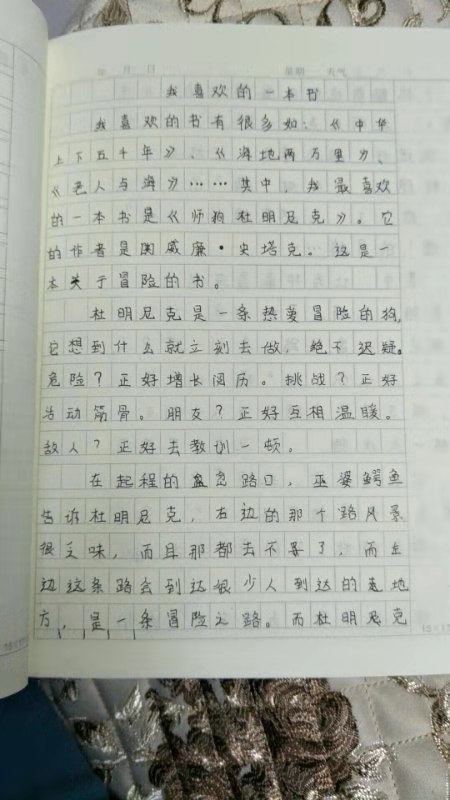 年 月 日 星期 天气
我喜欢的一本书
我喜欢的书有很多如：《中华
上下五千年》、《海地两万里》、
《老人与海》……其中，我最喜欢
的一本书是《师狗杜明尼克》。它
的作者是闵威廉·史塔克。这是一
本关于冒险的书。
杜明尼克是一条热爱冒险的狗，
它想到什么就立刻去做，绝不迟疑。
危险？正好增长阅历。挑战？正好
活动筋骨。朋友？正好互相温暖。
敌人？正好去教训一顿。
在起程的岔路口，巫婆鳄鱼
告诉杜明尼克，右边的那个路风景
很乏味，而且那都去不得了，而左
边这条路会到达很少人到达的地
方，是一条冒险之路。而杜明尼克